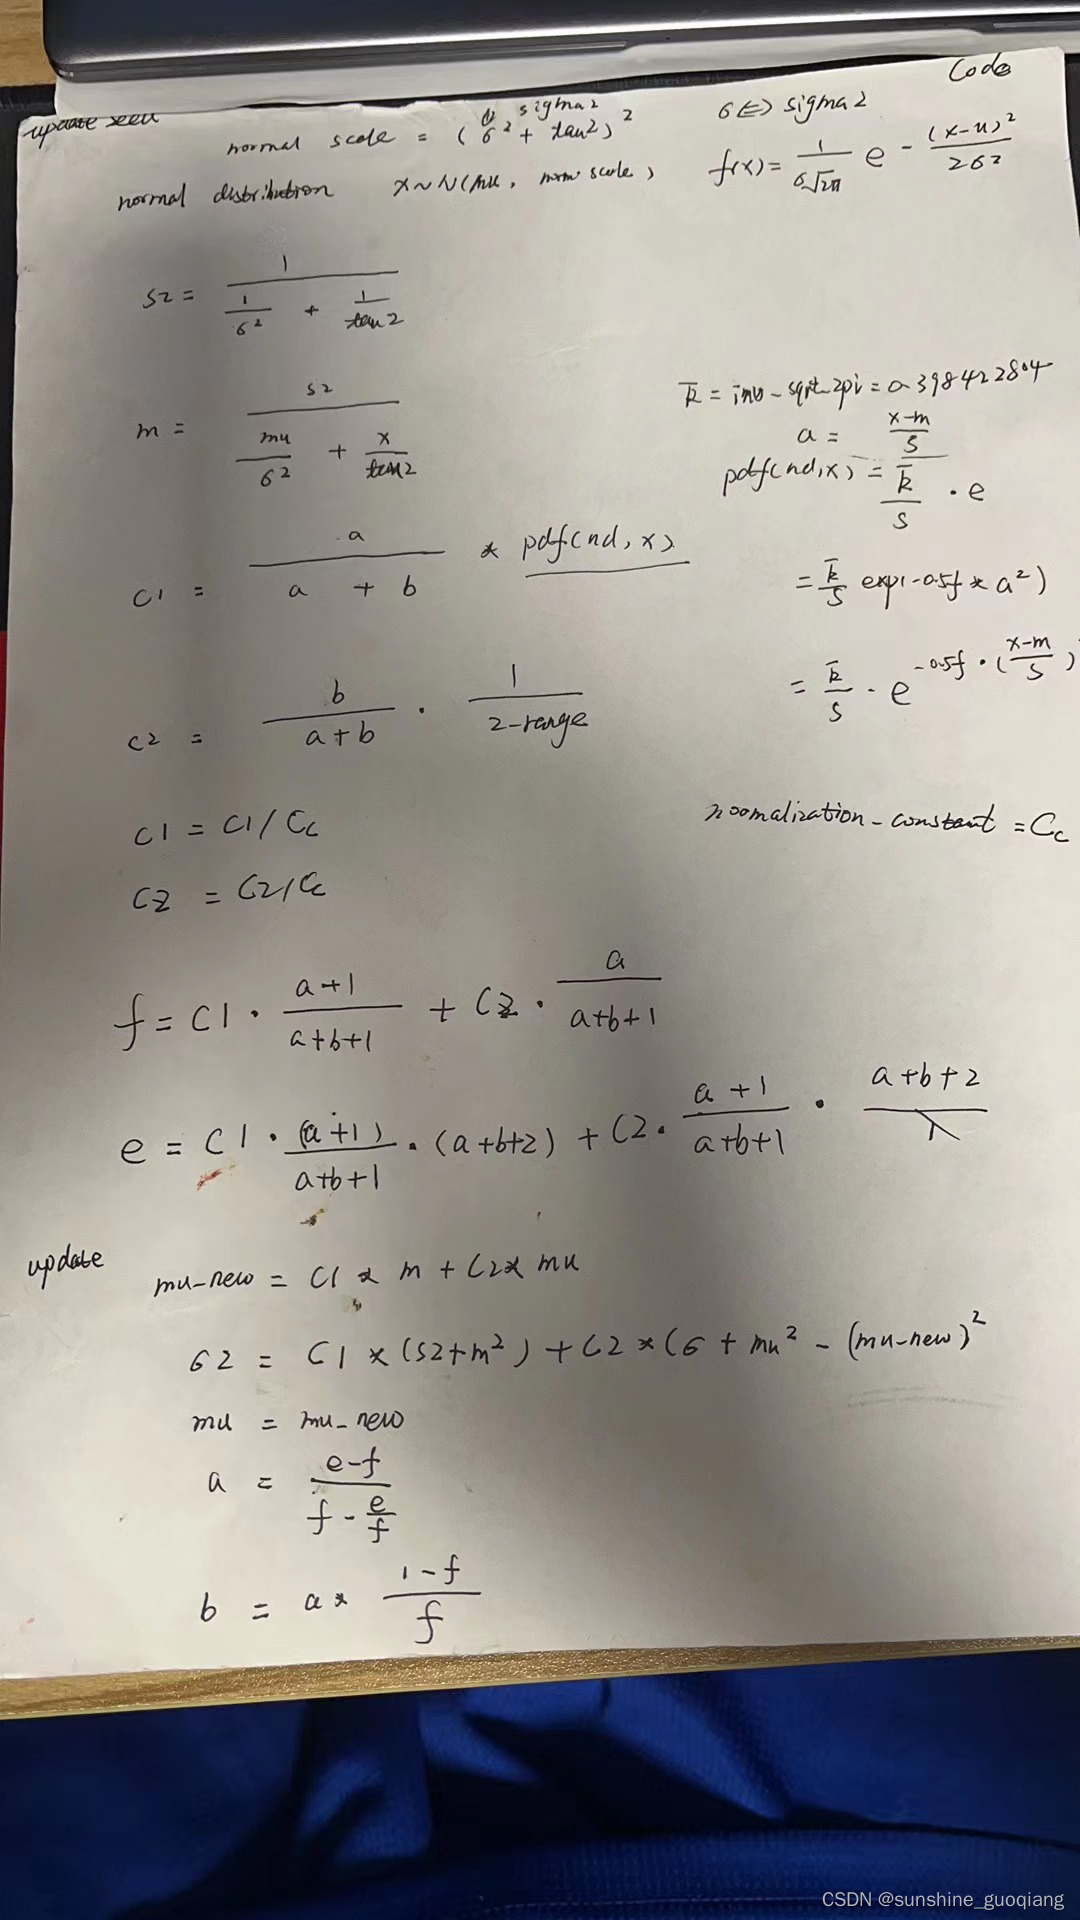 Code
update seed
normal scale = (6² + tau2)²
sigma2
6 <=> sigma2
normal distribution x~N(mu, norm scale) f(x) = 1/(6√2π) e^-((x-u)²/26²)
s2 = 1/(1/6² + 1/tau2)
m = s2/(mu/6² + x/tau2)
k̄ = inv-sqrt-2pi = 0.398422804
a = (x-m)/s
pdf(nd,x) = k̄/s · e
= k̄/s exp(-0.5f * a²)
= k̄/s · e^-0.5f·((x-m)/s)
c1 = a/(a + b) * pdf(nd, x)
c2 = b/(a+b) · 1/(2-range)
c1 = c1/Cc
normalization-constant = Cc
c2 = c2/Cc
f = c1 · (a+1)/(a+b+1) + c2 · a/(a+b+1)
e = c1 · (a+1)/(a+b+1) · (a+b+2) + c2 · (a+1)/(a+b+1) · (a+b+2)
update
mu-new = c1 * m + c2 * mu
62 = c1 * (s2+m²) + c2 * (6 + mu² - (mu-new)²
mu = mu-new
a = (e-f)/(f - e/f)
b = a * (1-f)/f
CSDN @sunshine_guoqiang